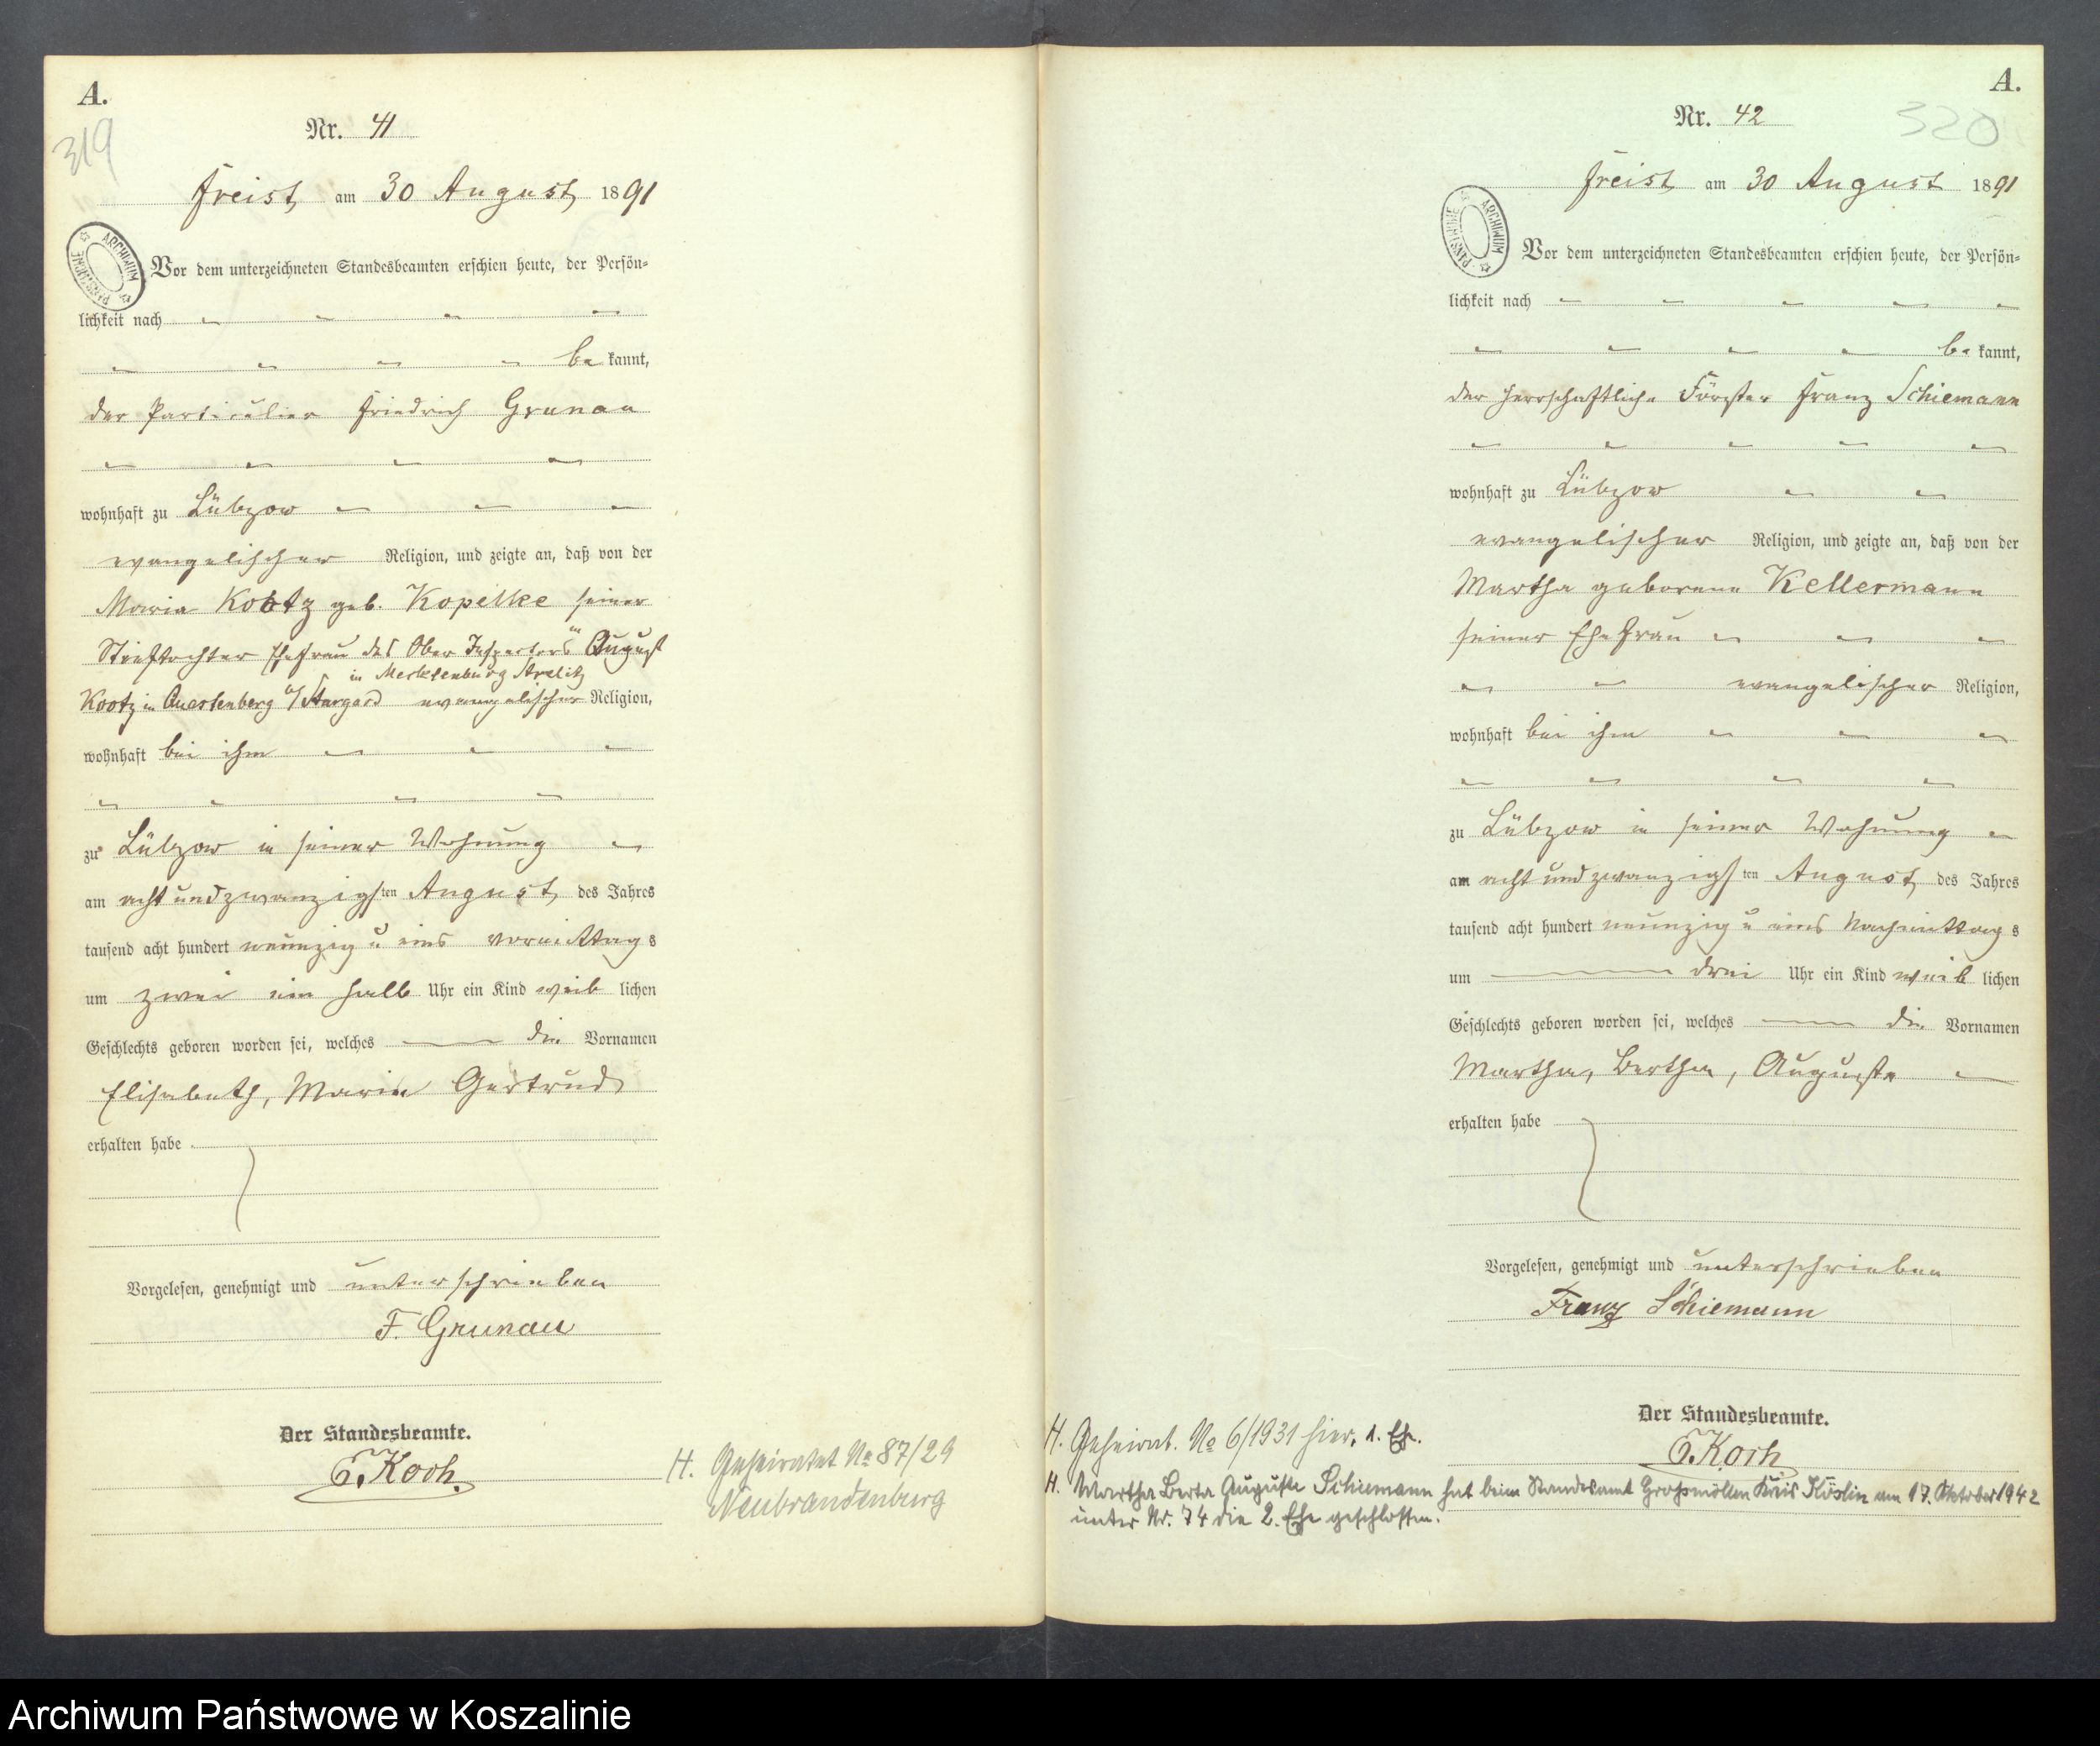 A.
319
Nr. 41
Freist, am 30 August, 1891
ARCHIWUM PAŃSTWOWE
Vor dem unterzeichneten Standesbeamten erschien heute, der Persön=
lichkeit nach
be kannt,
der Particulier Friedrich Grunau
wohnhaft zu Lübzow
evangelischer Religion, und zeigte an, daß von der
Maria Kootz geb. Kopelke seiner
Stieftochter Ehefrau des Ober Inspectors August
in Mecklenburg Strelitz
Kootz in Quastenberg b/ Stargard evangelischer Religion,
wohnhaft bei ihm
zu Lübzow in seiner Wohnung
am acht und zwanzigsten August, des Jahres
tausend acht hundert neunzig u eins vormittags
um zwei ein halb Uhr ein Kind weib lichen
Geschlechts geboren worden sei, welches die Vornamen
Elisabeth, Maria Gertrud
erhalten habe
Vorgelesen, genehmigt und unterschrieben
F. Grunau
Der Standesbeamte.
E. Koch.
H. Geheiratet No 87/29
Neubrandenburg
A.
320
Nr. 42
Freist am 30 August 1891
ARCHIWUM PAŃSTWOWE
Vor dem unterzeichneten Standesbeamten erschien heute, der Persön=
lichkeit nach
be kannt,
der herrschaftliche Förster Franz Schiemann
wohnhaft zu Lübzow
evangelischer Religion, und zeigte an, daß von der
Martha geborene Kellermann
seiner Ehefrau
evangelischer Religion,
wohnhaft bei ihm
zu Lübzow in seiner Wohnung
am acht und zwanzigsten August, des Jahres
tausend acht hundert neunzig u eins Nachmittags
um drei Uhr ein Kind weib lichen
Geschlechts geboren worden sei, welches die Vornamen
Martha, Bertha, Auguste
erhalten habe
Vorgelesen, genehmigt und unterschrieben
Franz Schiemann
Der Standesbeamte.
E. Koch
H. Geheirat. No 6/1931 hier, 1. Ehe.
H. Martha Berta Auguste Schiemann hat beim Standesamt Großmöllen Kreis Köslin am 17. Oktober 1942
unter Nr. 74 die 2. Ehe geschlossen.
Archiwum Państwowe w Koszalinie